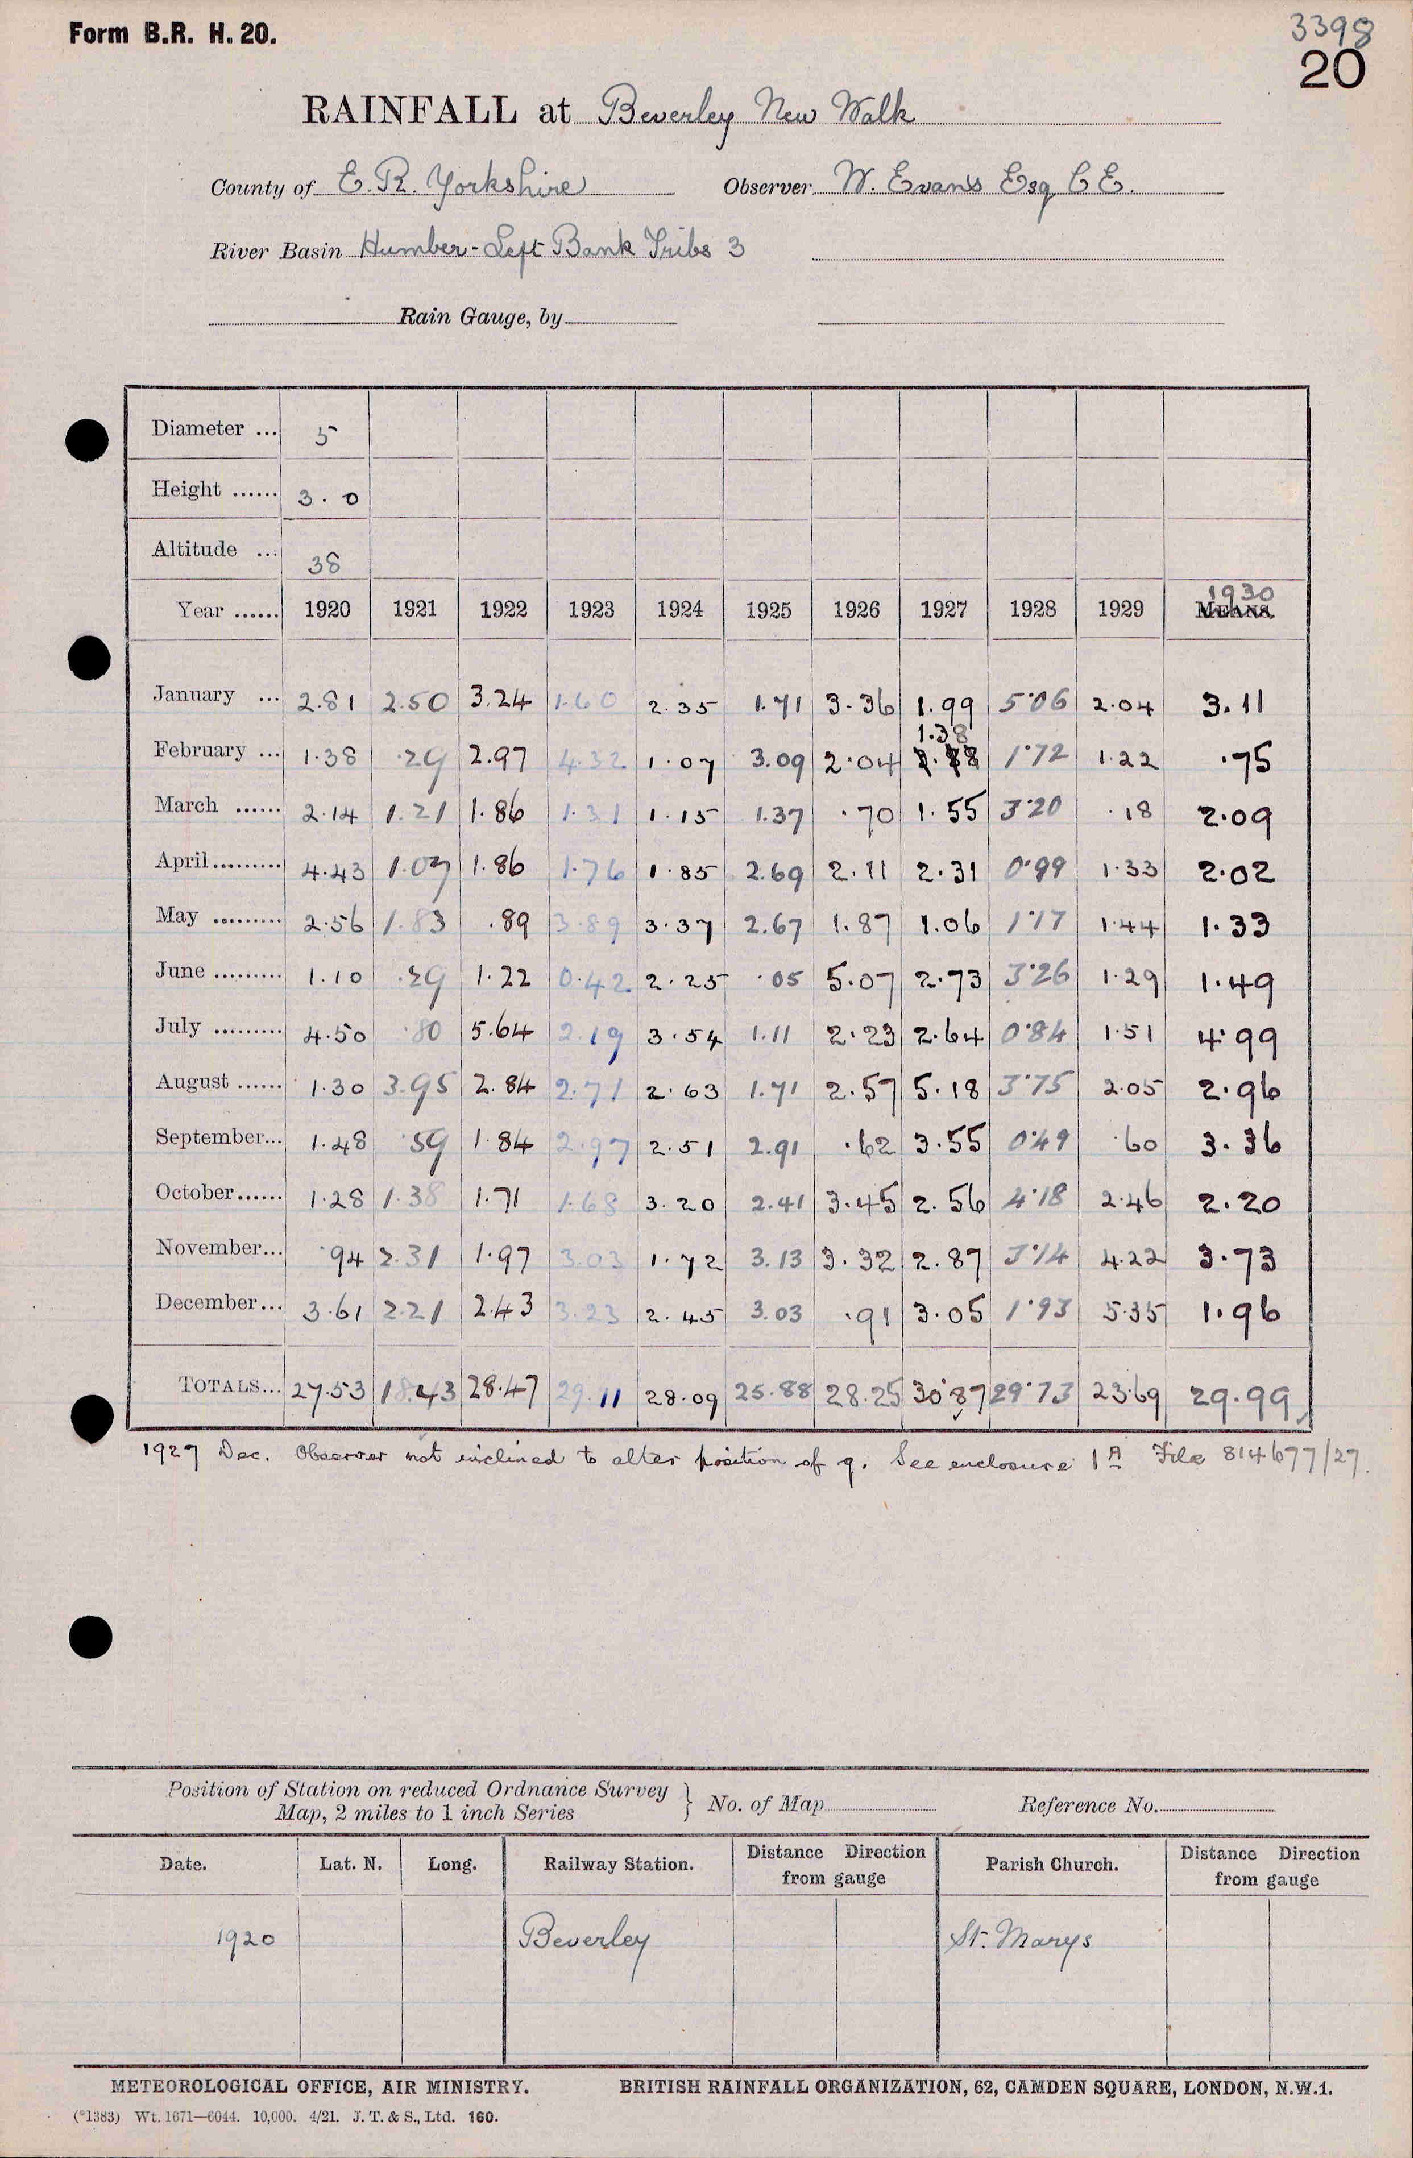 Form B.R. H. 20.
3398
20
RAINFALL at Beverley New Walk
County of E. R. Yorkshire Observer W. Evans Esq C E.
River Basin Humber - Left Bank Tribs 3
Rain Gauge, by
Diameter ... 5
Height ...... 3.0
Altitude ... 38
1930
Year ...... 1920 1921 1922 1923 1924 1925 1926 1927 1928 1929 MEANS.
January ... 2.81 2.50 3.24 1.60 2.35 1.71 3.36 1.99 5.06 2.04 3.11
1.38
February ... 1.38 .29 2.97 4.32 1.07 3.09 2.04 1.72 1.22 .75
March ...... 2.14 1.21 1.86 1.31 1.15 1.37 .70 1.55 3.20 .18 2.09
April......... 4.43 1.07 1.86 1.76 1.85 2.69 2.11 2.31 0.99 1.33 2.02
May ......... 2.56 1.83 .89 3.89 3.37 2.67 1.87 1.06 1.17 1.44 1.33
June ......... 1.10 .29 1.22 0.42 2.25 .05 5.07 2.73 3.26 1.29 1.49
July ......... 4.50 .80 5.64 2.19 3.54 1.11 2.23 2.64 0.84 1.51 4.99
August ...... 1.30 3.95 2.84 2.71 2.63 1.71 2.57 5.18 3.75 2.05 2.96
September... 1.48 .59 1.84 2.97 2.51 2.91 .62 3.55 0.49 .60 3.36
October...... 1.28 1.38 1.71 1.68 3.20 2.41 3.45 2.56 4.18 2.46 2.20
November... .94 2.31 1.97 3.03 1.72 3.13 3.32 2.87 3.14 4.22 3.73
December... 3.61 2.21 2.43 3.23 2.45 3.03 .91 3.05 1.93 5.35 1.96
TOTALS... 27.53 18.43 28.47 29.11 28.09 25.88 28.25 30.87 29.73 23.69 29.99
1927 Dec. Observer not inclined to alter position of g. See enclosure 1A File 814677/27.
Position of Station on reduced Ordnance Survey
Map, 2 miles to 1 inch Series } No. of Map Reference No.
Date. Lat. N. Long. Railway Station. Distance Direction from gauge Parish Church. Distance Direction from gauge
1920 Beverley St. Marys
METEOROLOGICAL OFFICE, AIR MINISTRY. BRITISH RAINFALL ORGANIZATION, 62, CAMDEN SQUARE, LONDON, N.W.1.
(*1383) Wt. 1671—6044. 10,000. 4/21. J. T. & S., Ltd. 160.